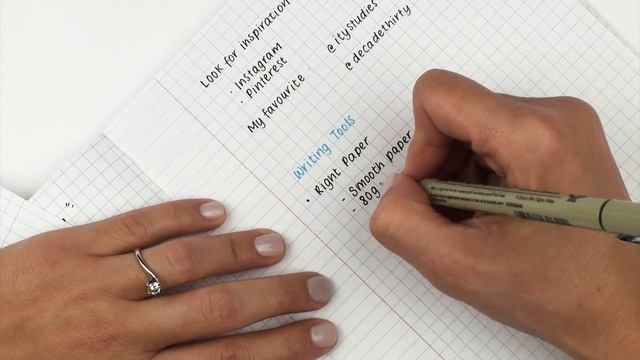 Look for inspiration
· Instagram
· Pinterest
My favourite :
@itystudies
@decadethirty
Writing Tools
• Right Paper
- Smooth paper
- 80g